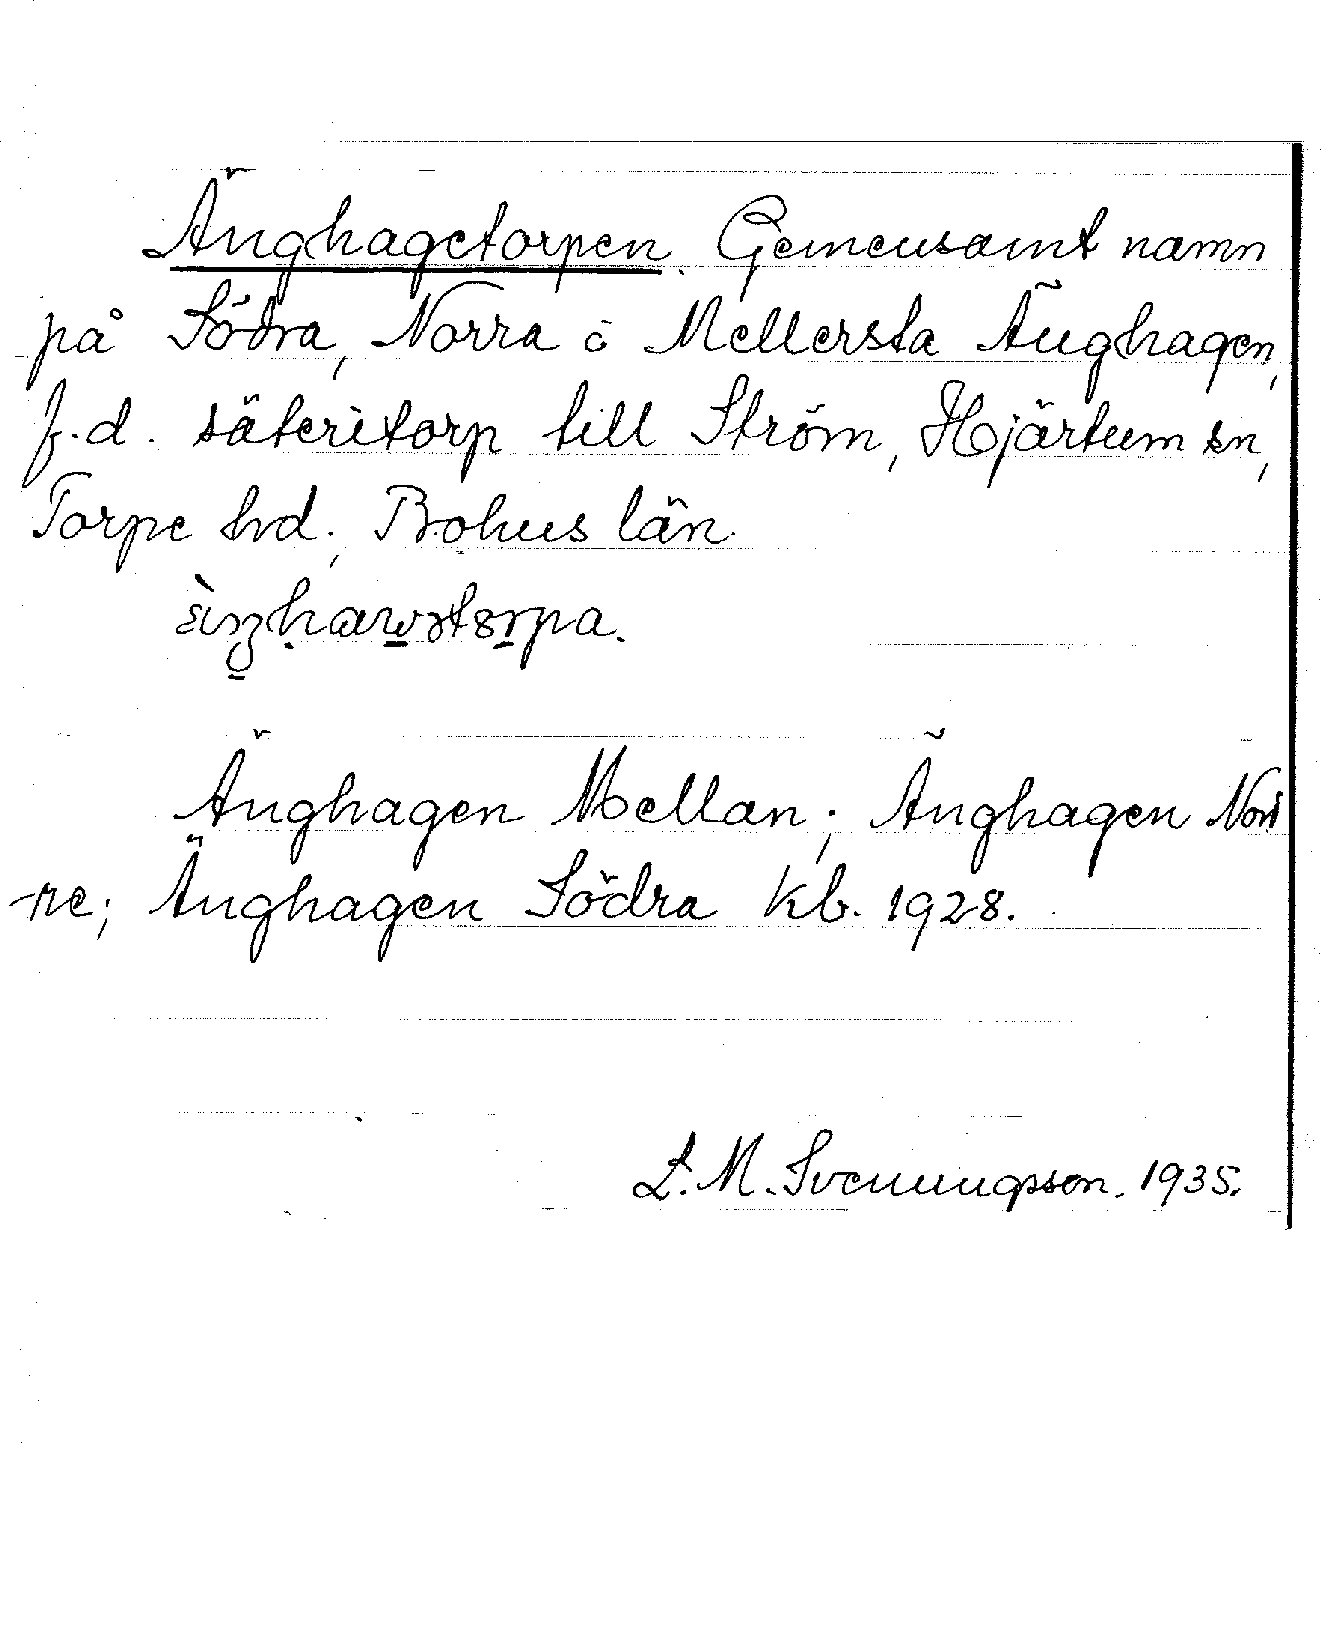 Änghagetorpen. Gemensamt namn
på Södra, Norra o Mellersta Änghagen,
f.d. säteritorp till Ström, Hjärtum sn,
Torpe hd., Bohus län.
Änghagen Mellan; Änghagen Nor-
re; Änghagen Södra Kb. 1928.
L. M. Svenungsson. 1935.